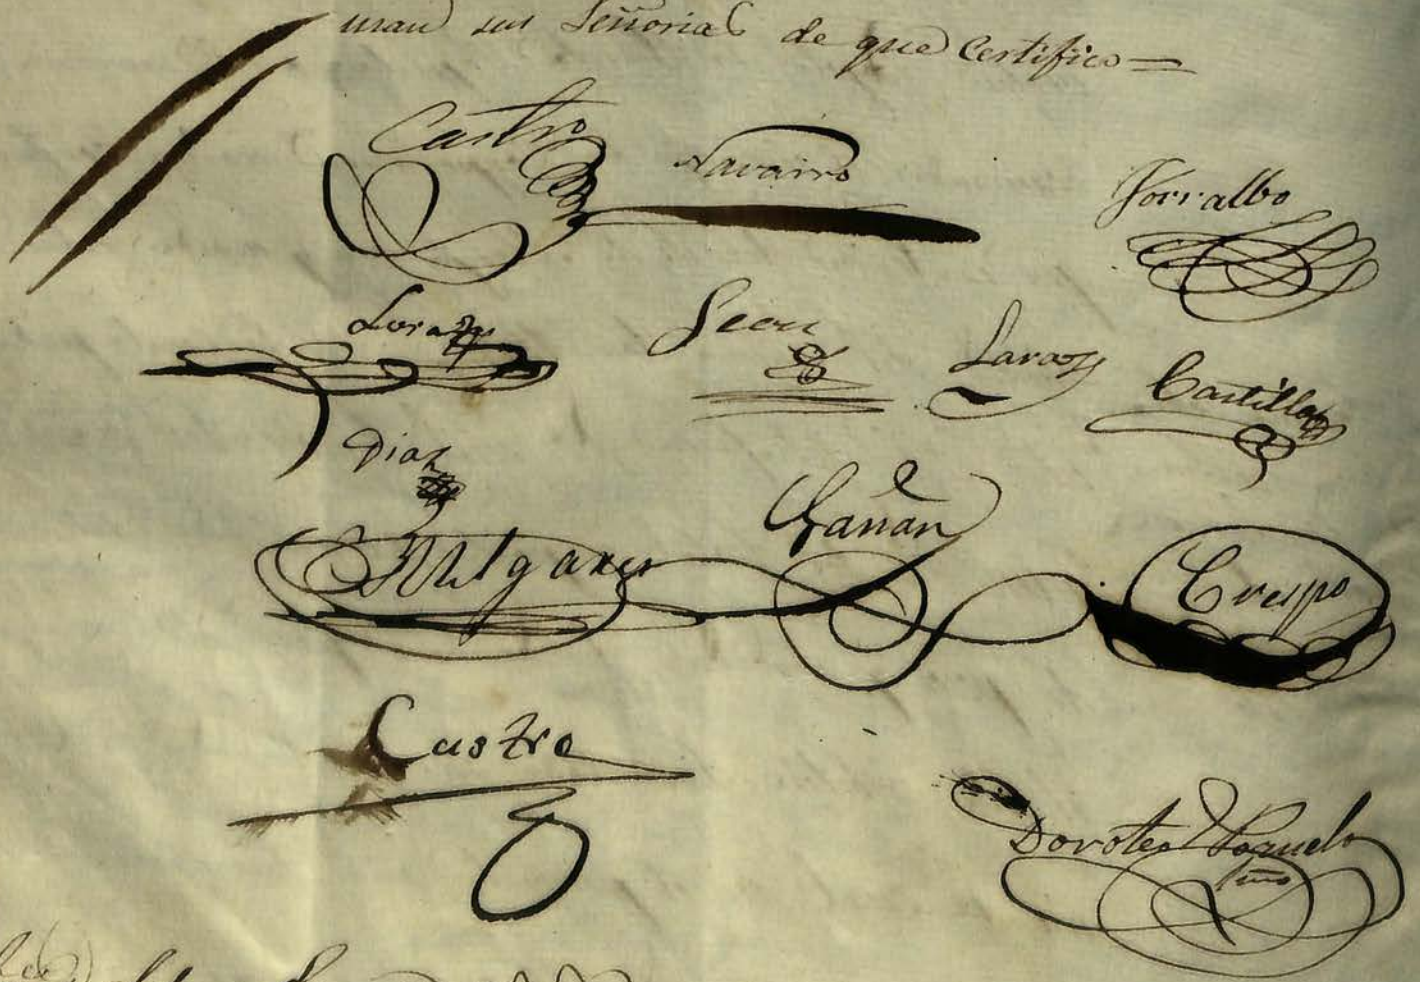 man sus Señorias de que Certifico =
Castro Navarro Torralbo
Leon Lara Castillo
Diaz
Melgares Gañan Crespo
Castro
Doroteo Pozuelo